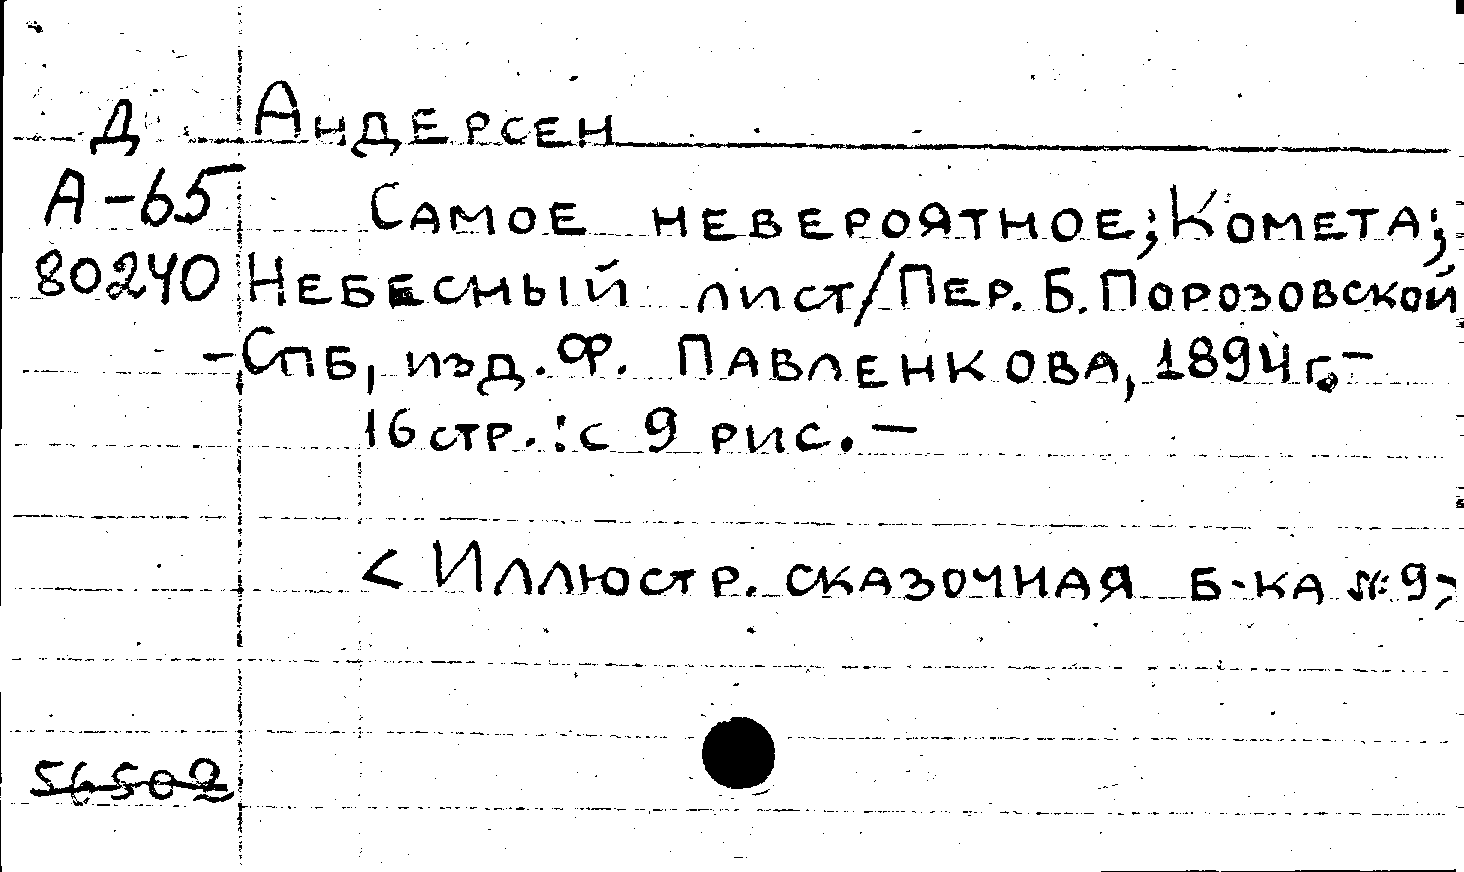 Д Андерсен
А-65 Самое невероятное; Комета;
80240 Небесный лист/Пер. Б. Порозовской
-Спб, изд. Ф. Павленкова, 1894г.-
16стр.: с 9 рис. —
< Иллюстр. сказочная б-ка № 9>
56502